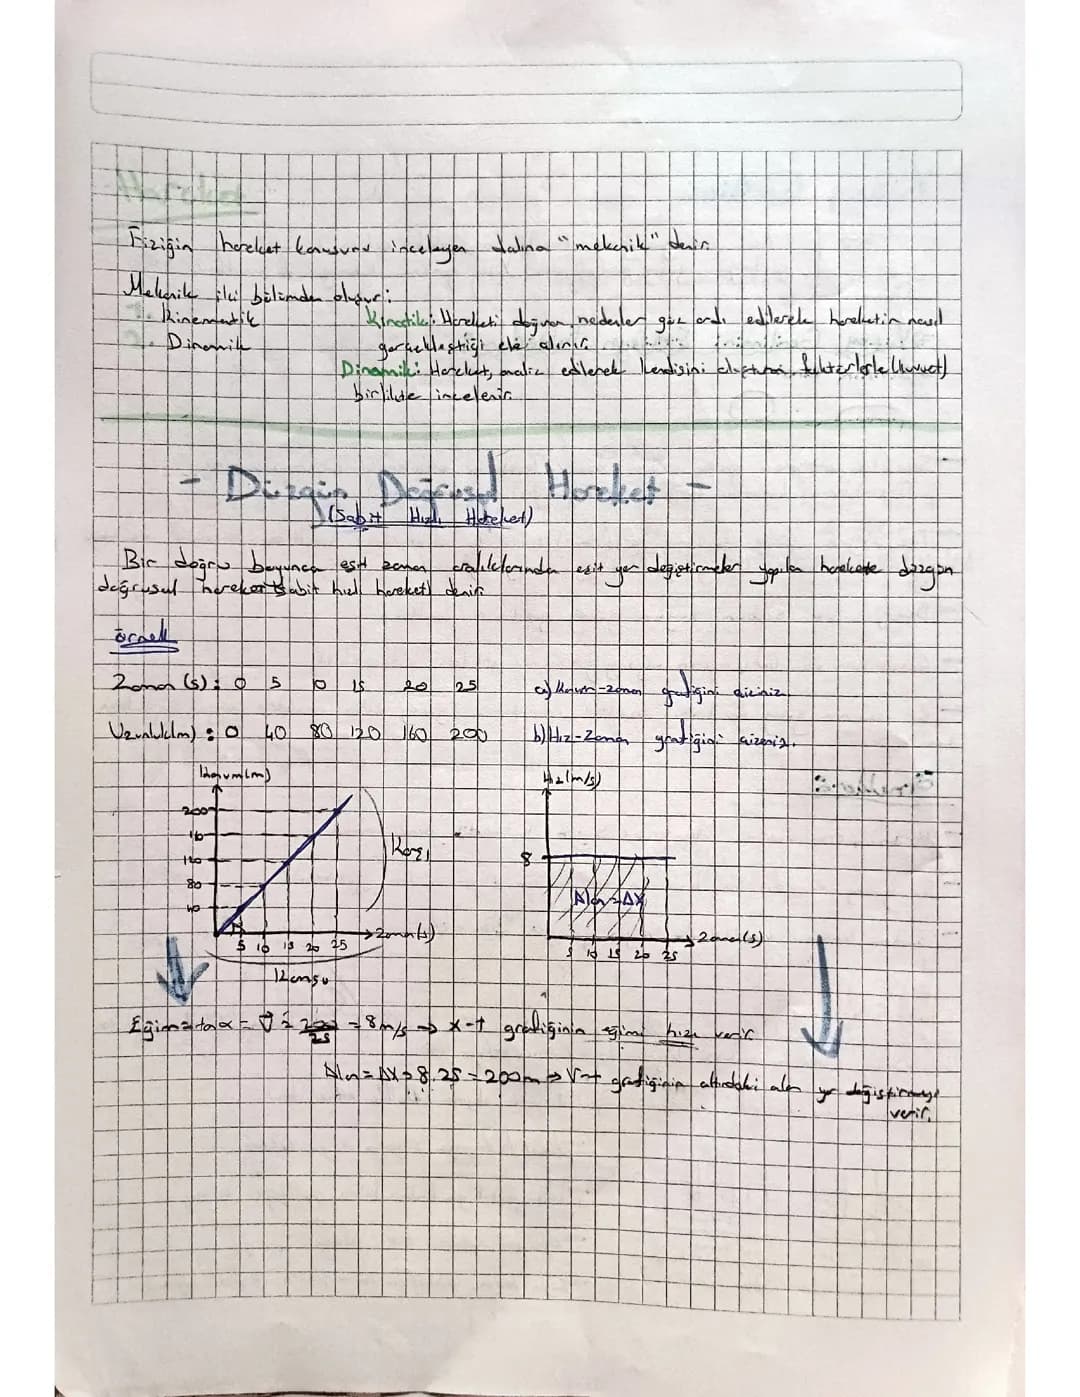 Fiziğin hareket konusunu inceleyen dalına "mekanik" denir.
Mekanik iki bölümden oluşur:
Kinematik
Dinamik
Kinetik: Hareketi doğuran nedenler göz ardı edilerek hareketin nasıl
gerçekleştiği ele alınır.
Dinamik: Hareket, analiz edilerek kendisini oluşturan faktörlerle (kuvvet)
birlikte incelenir.
- Düzgün Doğrusal Hareket -
(Sabit Hızlı Hareket)
Bir doğru boyunca eşit zaman aralıklarında eşit yer değiştirmeler yapılan harekete düzgün
doğrusal hareket (sabit hızlı hareket) denir.
örnek
Zaman (s): 0 5 10 15 20 25
Uzunluk(m): 0 40 80 120 160 200
a) Konum-zaman grafiğini çiziniz.
b) Hız-Zaman grafiğini çizeniz.
Konum(m)
200
16
120
80
40
5 10 15 20 25
Zaman(s)
Karşı
Komşu
Hız(m/s)
8
Alan=ΔX
5 10 15 20 25
Zaman(s)
Eğim=tanα = V = 200/25 = 8m/s → x-t grafiğinin eğimi hızı verir.
Alan=ΔX=8.25=200m → V-t grafiğinin altındaki alan yer değiştirmeyi
verir.